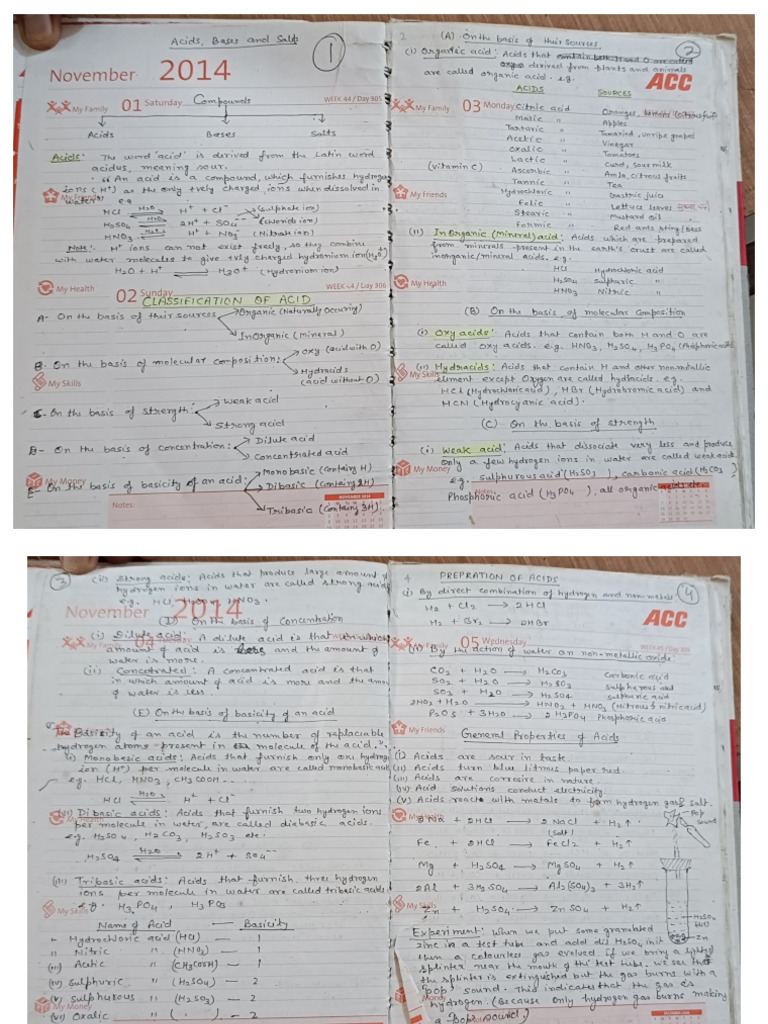 Acids, Bases and Salts
1
November 2014
My Family 01 Saturday Compounds WEEK 44 / Day 305
Acids Bases Salts
Acids: The word 'acid' is derived from the Latin word
acidus, meaning sour.
"An acid is a compound, which furnishes hydrogen
ions (H⁺) as the only +vely charged ions when dissolved in
water". e.g
HCl ⇌ H₂O H⁺ + Cl⁻ (chloride ion)
H₂SO₄ ⇌ H₂O 2H⁺ + SO₄⁻⁻ (sulphate ion)
HNO₃ ⇌ H₂O H⁺ + NO₃⁻ (Nitrate ion)
Note: H⁺ ions can not exist freely, so they combine
with water molecules to give +vely charged hydronium ion (H₃O⁺)
H₂O + H⁺ → H₃O⁺ (Hydronium ion)
My Health 02 Sunday WEEK 44 / Day 306
CLASSIFICATION OF ACID
A- On the basis of their sources
Organic (Naturally Occuring)
InOrganic (Mineral)
B- On the basis of molecular composition:
Oxy (acid with O)
Hydracids (acid without O)
My Skills
C- On the basis of strength
Weak acid
Strong acid
D- On the basis of concentration:
Dilute acid
Concentrated acid
My Money
E- On the basis of basicity of an acid:
Monobasic (Containg H)
Dibasic (Containg 2H)
Tribasic (Containg 3H)
Notes:
NOVEMBER 2014
2 (A) On the basis of their sources.
2
(i) Organic acid: Acids that
derived from plants and animals
are called organic acid. e.g.
ACC
ACIDS SOURCES
My Family 03 Monday Citric acid Oranges, lemons (citrus fruit)
Malic " Apples
Tartaric " Tamarind, unripe grapes
Acetic " Vinegar
Oxalic " Tomatoes
Lactic " Curd, sour milk
(vitamin C) Ascorbic " Amla, citrus fruits
Tannic " Tea
My Friends
Hydrochloric " Gastric juice
Folic " Lettuce leaves
Stearic " Mustard oil
Formic " Red ants sting/Bees
(II) InOrganic (Mineral) acid: Acids which are prepared
from minerals present in the earth's crust are called
inorganic/mineral acids. e.g:
HCl Hydrochloric acid
H₂SO₄ Sulphuric "
HNO₃ Nitric "
My Health
(B) On the basis of molecular Composition
(i) Oxy acids: Acids that contain both H and O are
called Oxy acids. e.g. HNO₃, H₂SO₄, H₃PO₄ (Phosphoric acid)
(ii) Hydracids: Acids that contain H and other nonmetallic
My Skills
element except Oxygen are called hydracids. e.g.
HCl (Hydrochloric acid), HBr (Hydrobromic acid) and
HCN (Hydrocyanic acid).
(C) On the basis of strength
(i) Weak acid: Acids that dissociate very less and produce
only a few hydrogen ions in water are called weak acid.
My Money
e.g. sulphurous acid (H₂SO₃), carbonic acid (H₂CO₃)
Phosphoric acid (H₃PO₄), all organic acids etc.
Notes
3
(ii) Strong acids: Acids that produce large amount of
hydrogen ions in water are called strong acids
e.g. HCl, HNO₃.
November 2014
(D) On the basis of Concentration
04
(i) Dilute acid: A dilute acid is that in which
amount of acid is less and the amount of
water is more.
(ii) Concentrated: A concentrated acid is that
in which amount of acid is more and the amount
of water is less.
(E) On the basis of basicity of an acid
The Basicity of an acid is the number of replaciable
hydrogen atoms present in molecule of the acid.
i) Monobasic acids: Acids that furnish only one hydrogen
ion (H⁺) per molecule in water are called monobasic acids
e.g. HCl, HNO₃, CH₃COOH.
HCl ⇌ H₂O H⁺ + Cl⁻
(ii) Dibasic acids: Acids that furnish two hydrogen ions
per molecule in water, are called diabasic acids.
e.g. H₂SO₄, H₂CO₃, H₂SO₃ etc.
H₂SO₄ ⇌ H₂O 2H⁺ + SO₄⁻⁻
(iii) Tribasic acids: Acids that furnish three hydrogen
ions per molecule in water are called tribasic acids
e.g. H₃PO₄, H₃PO₃
My Skills
Name of Acid — Basicity
Hydrochloric acid (HCl) — 1
Nitric " (HNO₃) — 1
(iii) Acetic " (CH₃COOH) — 1
(iv) Sulphuric " (H₂SO₄) — 2
(v) Sulphurous " (H₂SO₃) — 2
(vi) Oxalic " — 2
4 PREPRATION OF ACIDS
4
(i) By direct combination of hydrogen and non-metals
H₂ + Cl₂ → 2HCl
H₂ + Br₂ → 2HBr
ACC
05 Wednesday
(ii) By the action of water on non-metallic oxide
CO₂ + H₂O → H₂CO₃ Carbonic acid
SO₂ + H₂O → H₂SO₃ Sulpherous acid
SO₃ + H₂O → H₂SO₄ sulphuric acid
2NO₂ + H₂O → HNO₂ + HNO₃ (Nitrous & nitric acid)
P₂O₅ + 3H₂O → 2H₃PO₄ Phosphoric acid
My Friends
General Properties of Acids
(i) Acids are sour in taste.
(ii) Acids turn blue litmus paper red.
(iii) Acids are corrosive in nature.
(iv) Acid solutions conduct electricity.
(v) Acids reacts with metals to form hydrogen gas & salt.
Pop sound
2Na + 2HCl → 2NaCl + H₂↑
(salt)
Fe + 2HCl → FeCl₂ + H₂↑
Mg + H₂SO₄ → MgSO₄ + H₂↑
2Al + 3H₂SO₄ → Al₂(SO₄)₃ + 3H₂↑
Zn + H₂SO₄ → ZnSO₄ + H₂↑
H₂SO₄
Zn
Experiment: When we put some granulated
zinc in a test tube and add dil H₂SO₄ in it
then a colourless gas evolved. if we bring a lighted
splinter near the mouth of the test tube, we see that
the splinter is extinguished but the gas burns with a
'pop' sound. This indicates that the gas is
hydrogen. (Because only hydrogen gas burns making
a 'pop sound.')